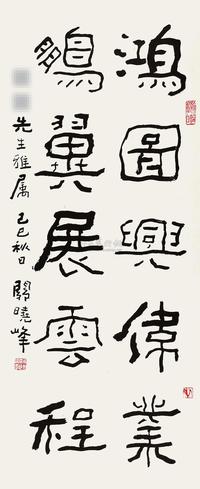 鴻圖興偉業
鵬翼展雲程
先生雅屬 己巳秋日 關曉峯